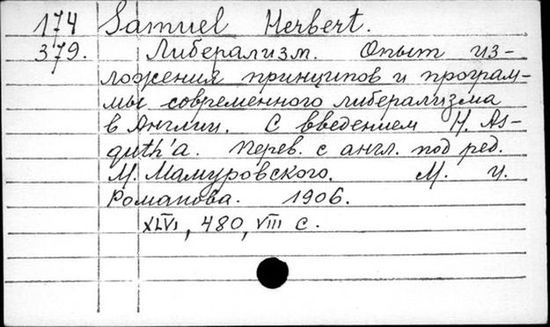 174 Samuel Herbert.
379. Либерализм. Опыт из-
ложения принципов и програм-
мы современного либерализма
в Англии. С введением H. As-
quith'a. Перев. с англ. под ред.
М. Мамуровского. М. И.
Романова. 1906.
XLVI, 480, VIII с.